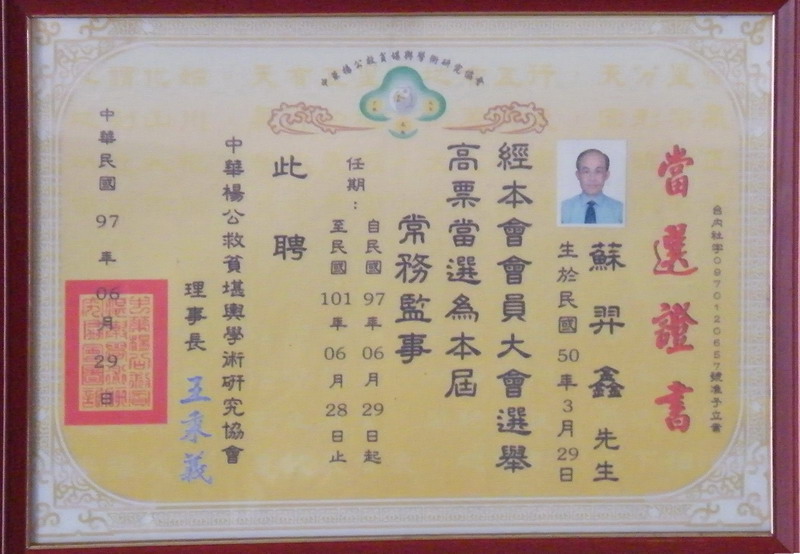 中華楊公救貧堪輿學術研究協會
當選證書
台內社字0970120657號准予立案
蘇羿鑫 先生
生於民國 50 年 3 月 29 日
經本會會員大會選舉
高票當選為本屆
常務監事
任期：
自民國 97 年 06 月 29 日起
至民國 101 年 06 月 28 日止
此聘
中華楊公救貧堪輿學術研究協會
理事長 王秉義
中華民國 97 年 06 月 29 日